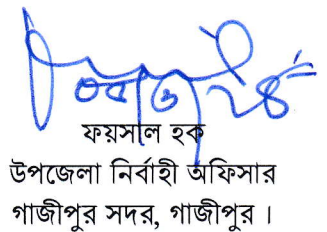 ফয়সাল হক
উপজেলা নির্বাহী অফিসার
গাজীপুর সদর, গাজীপুর।